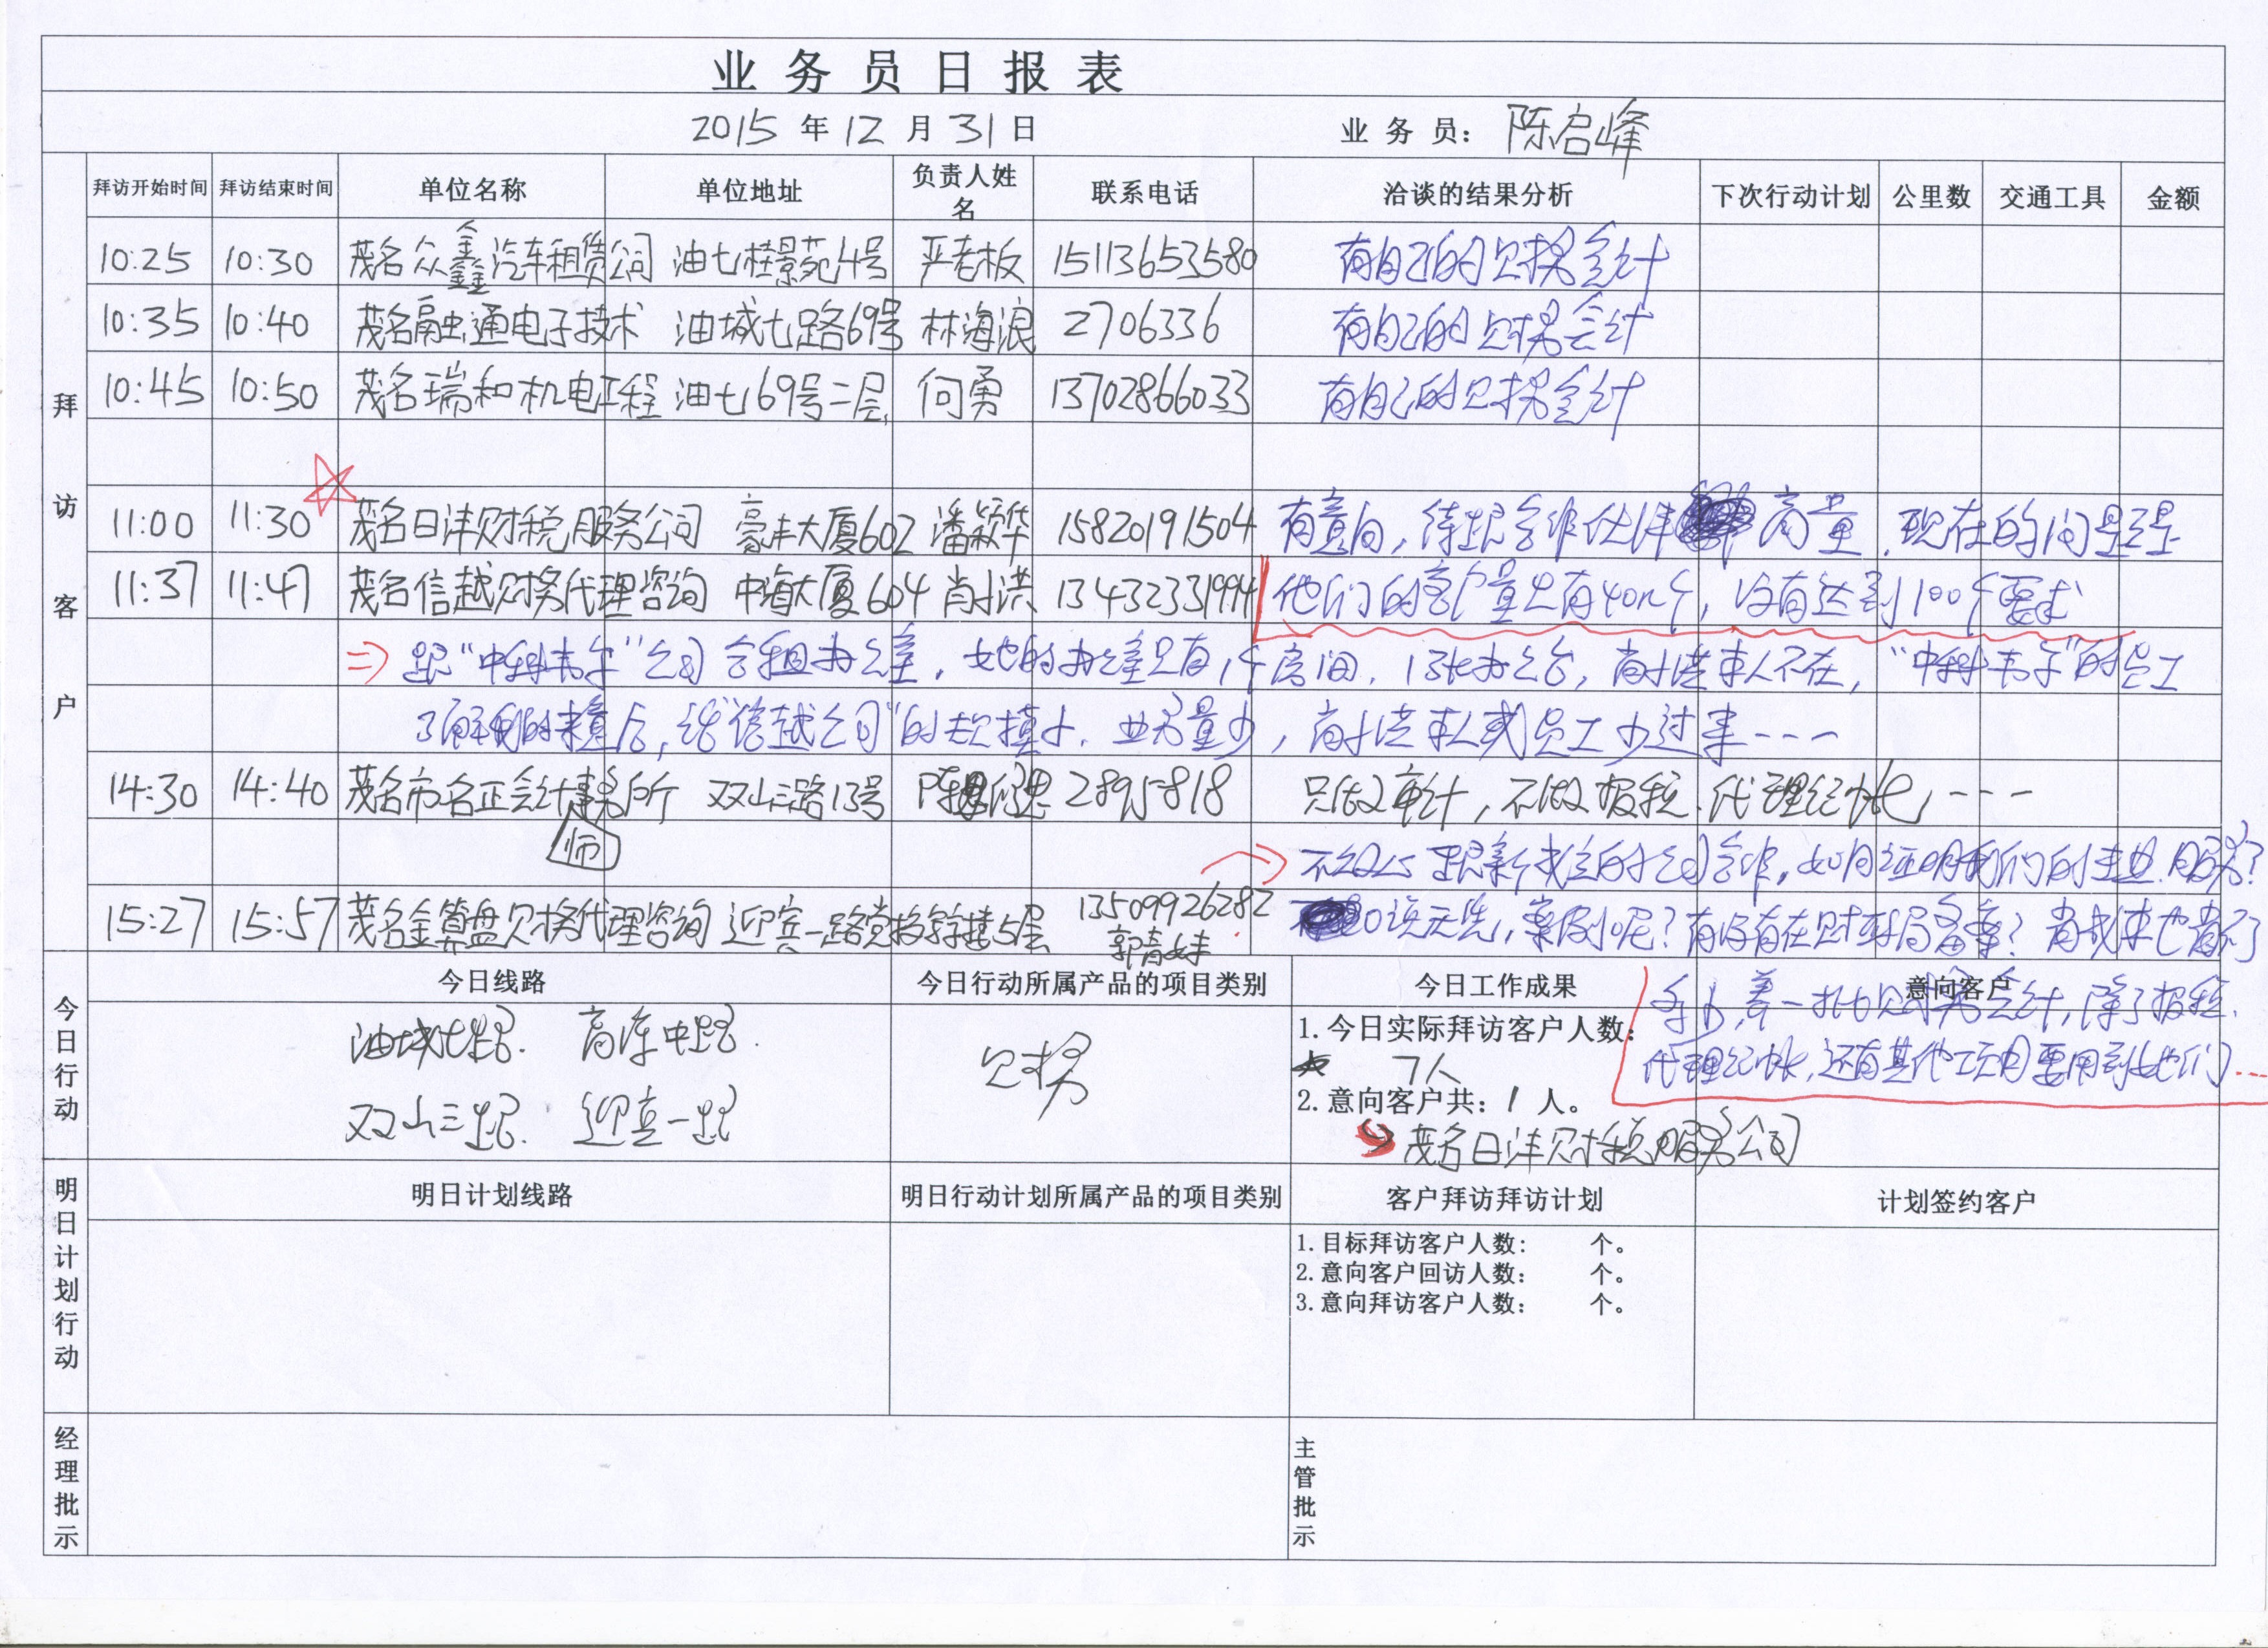 业务员日报表
2015年12月31日 业务员: 陈启峰
拜访客户
拜访开始时间 拜访结束时间 单位名称 单位地址 负责人姓名 联系电话 洽谈的结果分析 下次行动计划 公里数 交通工具 金额
10:25 10:30 茂名众鑫汽车租赁公司 油七桂景苑4号 严老板 15113653580 有自己的财务会计
10:35 10:40 茂名融通电子技术 油城七路69号 林海浪 2706336 有自己的财务会计
10:45 10:50 茂名瑞和机电工程 油七69号二层 何勇 13702866033 有自己的财务会计
11:00 11:30 茂名日沣财税服务公司 豪丰大厦602 潘颖华 15820191504 有意向,待跟合作伙伴商量.现在的问题是
11:37 11:47 茂名信越财务代理咨询 中海大厦604 肖小洪 13432331994 他们的客户量只有40几个,没有达到100个要求
⇒ 跟"中科韦尔"公司合租办公室.她的办公室只有1个房间.1张办公台,肖小洪本人不在,"中科韦尔"的员工
了解我的来意后,话"信越公司"的规模小.业务量少,肖小洪本人或员工少过来---
14:30 14:40 茂名市名正会计事务所 双山三路13号 2895818 只做审计,不做报税.代理记帐,---
师
→ 不敢跟新成立的公司合作,如何证明我们的专业.服务?
15:27 15:57 茂名金算盘财务代理咨询 迎宾一路党校宿舍楼5层 13509926282 口说无凭,案例呢?有没有在财政局备案?肖成本也省不了
郭青妹
今日行动
今日线路 今日行动所属产品的项目类别 今日工作成果 意向客户
多少,养一批财务会计,除了报税.
代理记帐,还有其他项目要用到她们...
油城七路. 高凉中路.
双山三路. 迎宾一路
财务
1.今日实际拜访客户人数:
7人
2.意向客户共: 1 人。
茂名日沣财税服务公司
明日计划行动
明日计划线路 明日行动计划所属产品的项目类别 客户拜访拜访计划 计划签约客户
1.目标拜访客户人数: 个。
2.意向客户回访人数: 个。
3.意向拜访客户人数: 个。
经理批示 主管批示